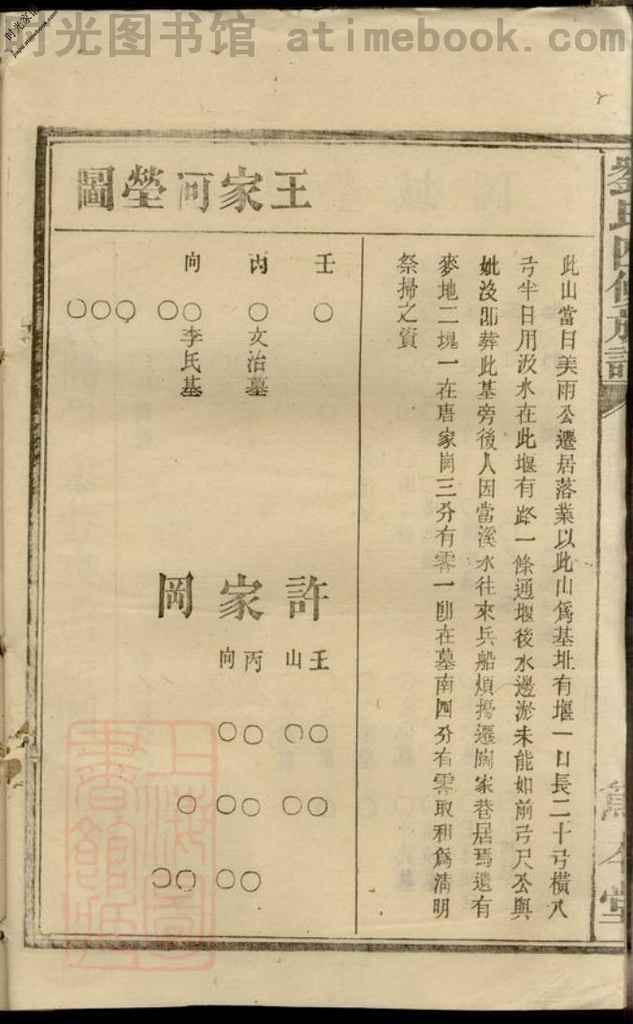 时光图书馆 atimebook.com
时光图书馆
劉氏四修族譜
此山當日美雨公遷居落業以此山爲基址有堰一口長二十弓橫八
弓半日用汲水在此堰有路一條通堰後水邊淤未能如前弓尺公與
妣沒卽葬此基旁後人因當溪水往來兵船煩擾遷陶家巷居焉遺有
麥地二塊一在唐家崗三分有零一卽在墓南四分有零取租爲淸明
祭掃之資
王家河塋圖
壬
內 文治墓
向 李氏墓
許家岡
壬山
丙向
上海圖書館藏